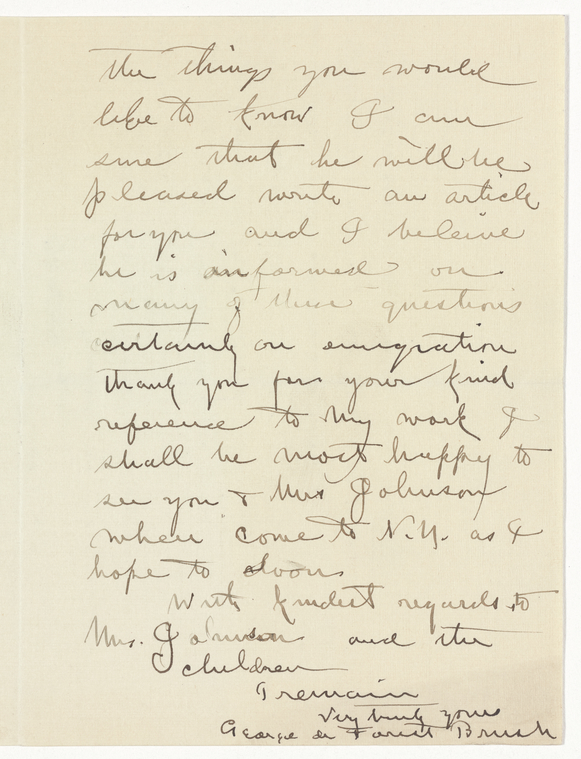 the things you would
like to know I am
sure that he will be
pleased write an article
for you and I beleive
he is informed on
many of these questions
certainly on emigration
thank you for your kind
reference to my work I
shall be most happy to
see you & Mrs Johnson
when come to N.Y. as I
hope to soon
With kindest regards to
Mrs. Johnson and the
children
I remain
Very truly yours
George de Forest Brush